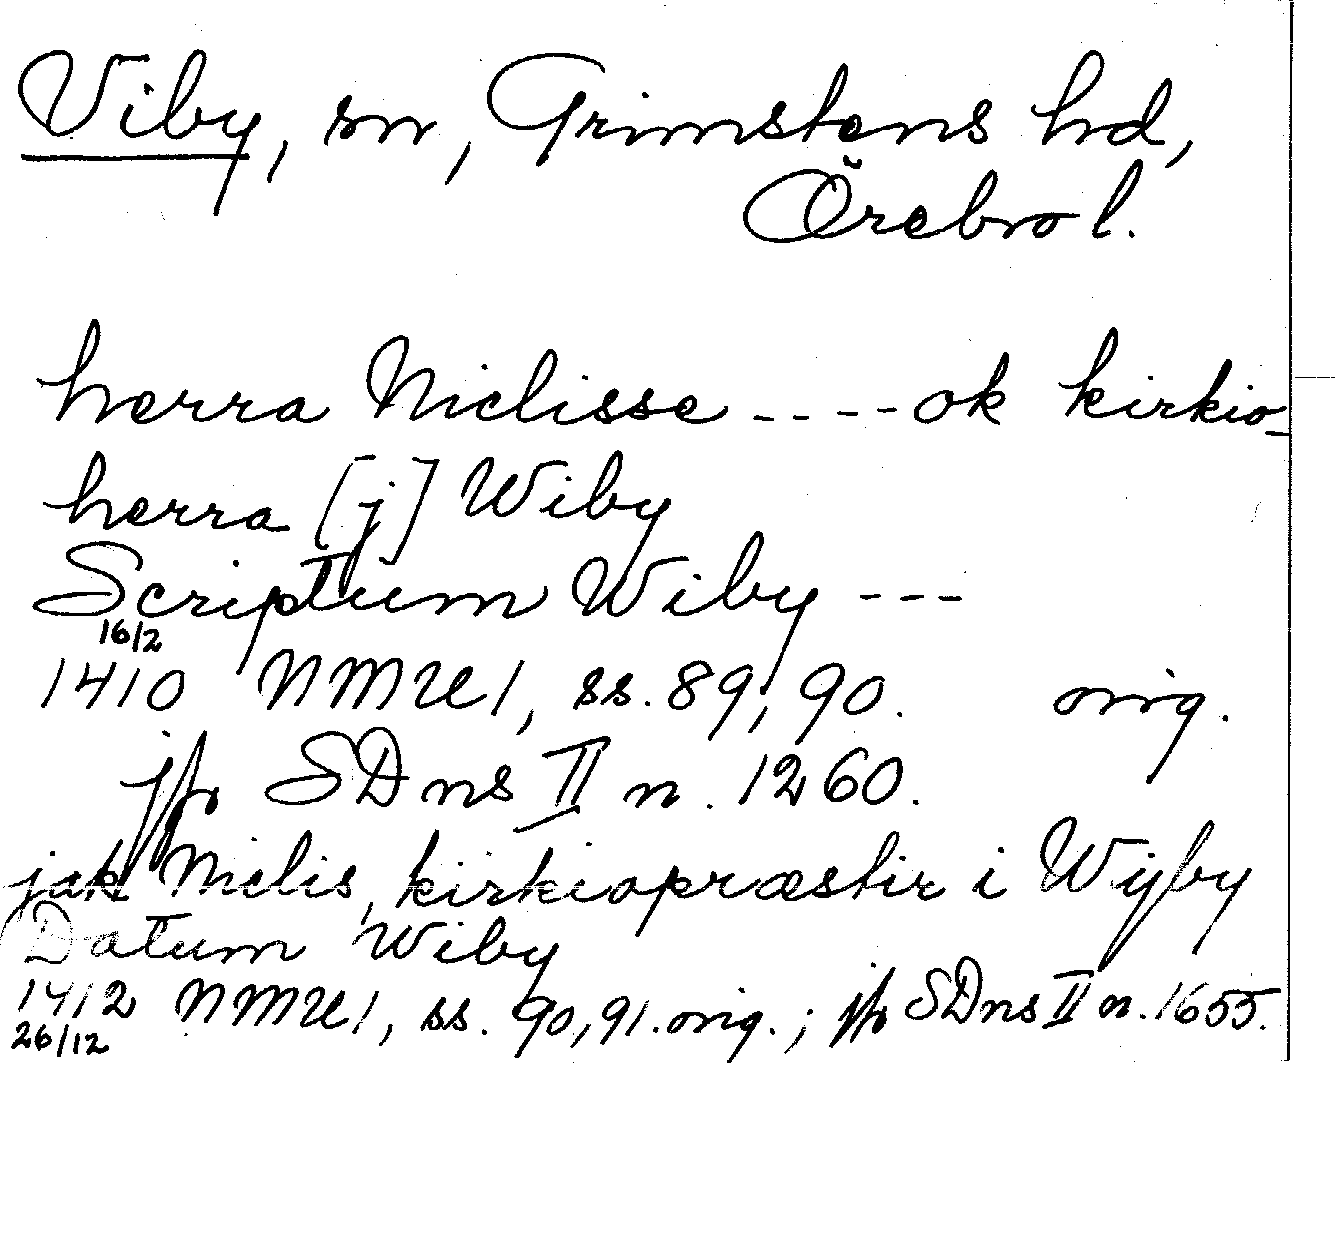 Viby, sn, Grimstens hd,
Örebro l.
herra Niclisse ---- ok kirkio-
herra [j] Wiby
Scriptum Wiby ---
16/2
1410 NMU 1, ss. 89, 90. orig.
jfr SDns II n. 1260.
jak Niclis, kirkiopræstir i Wijby
Datum Wiby
1412 NMU 1, ss. 90, 91. orig.; jfr SDns II n. 1655.
26/12